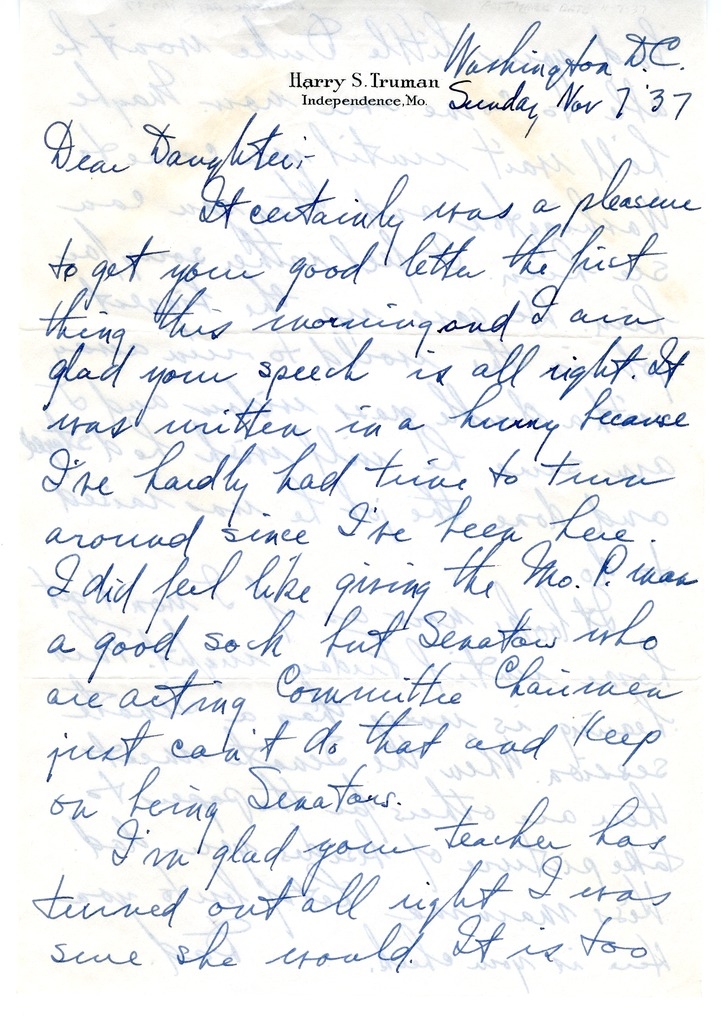 Harry S. Truman
Independence, Mo.
Washington D.C.
Sunday Nov 7 '37
Dear Daughter;-
It certainly was a pleasure
to get your good letter the first
thing this morning and I am
glad your speech is all right. It
was written in a hurry because
I've hardly had time to turn
around since I've been here.
I did feel like giving the Mo. P. man
a good sock but Senators who
are acting Committee Chairmen
just can't do that and keep
on being Senators.
I'm glad your teacher has
turned out all right I was
sure she would. It is too